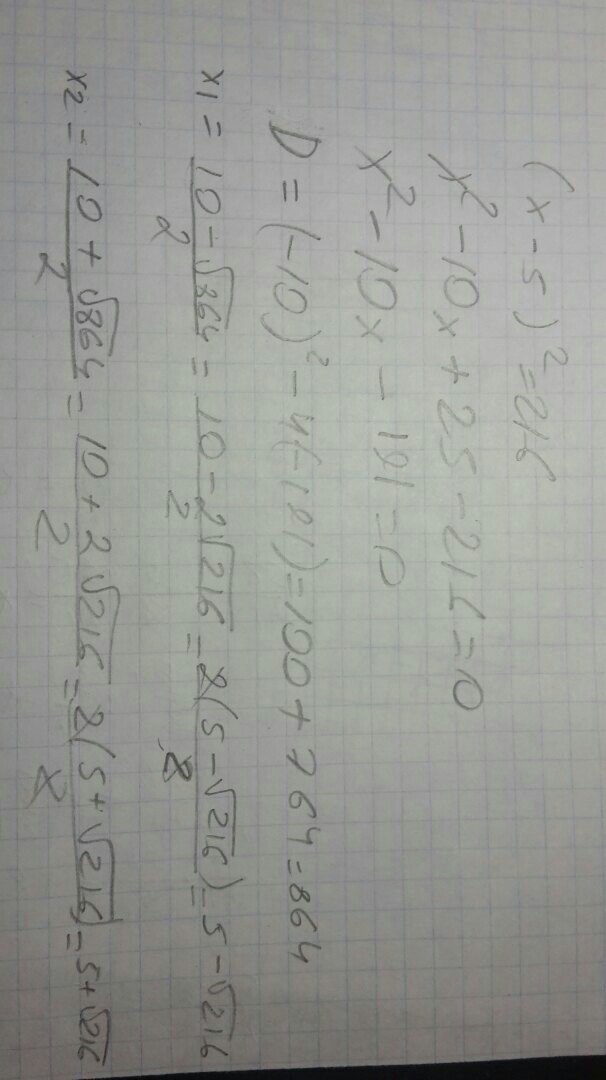 (x - 5)² = 216
x² - 10x + 25 - 216 = 0
x² - 10x - 191 = 0
D = (-10)² - 4(-191) = 100 + 764 = 864
x₁ = (10 - √864)/2 = (10 - 2√216)/2 = 2(5 - √216)/2 = 5 - √216
x₂ = (10 + √864)/2 = (10 + 2√216)/2 = 2(5 + √216)/2 = 5 + √216